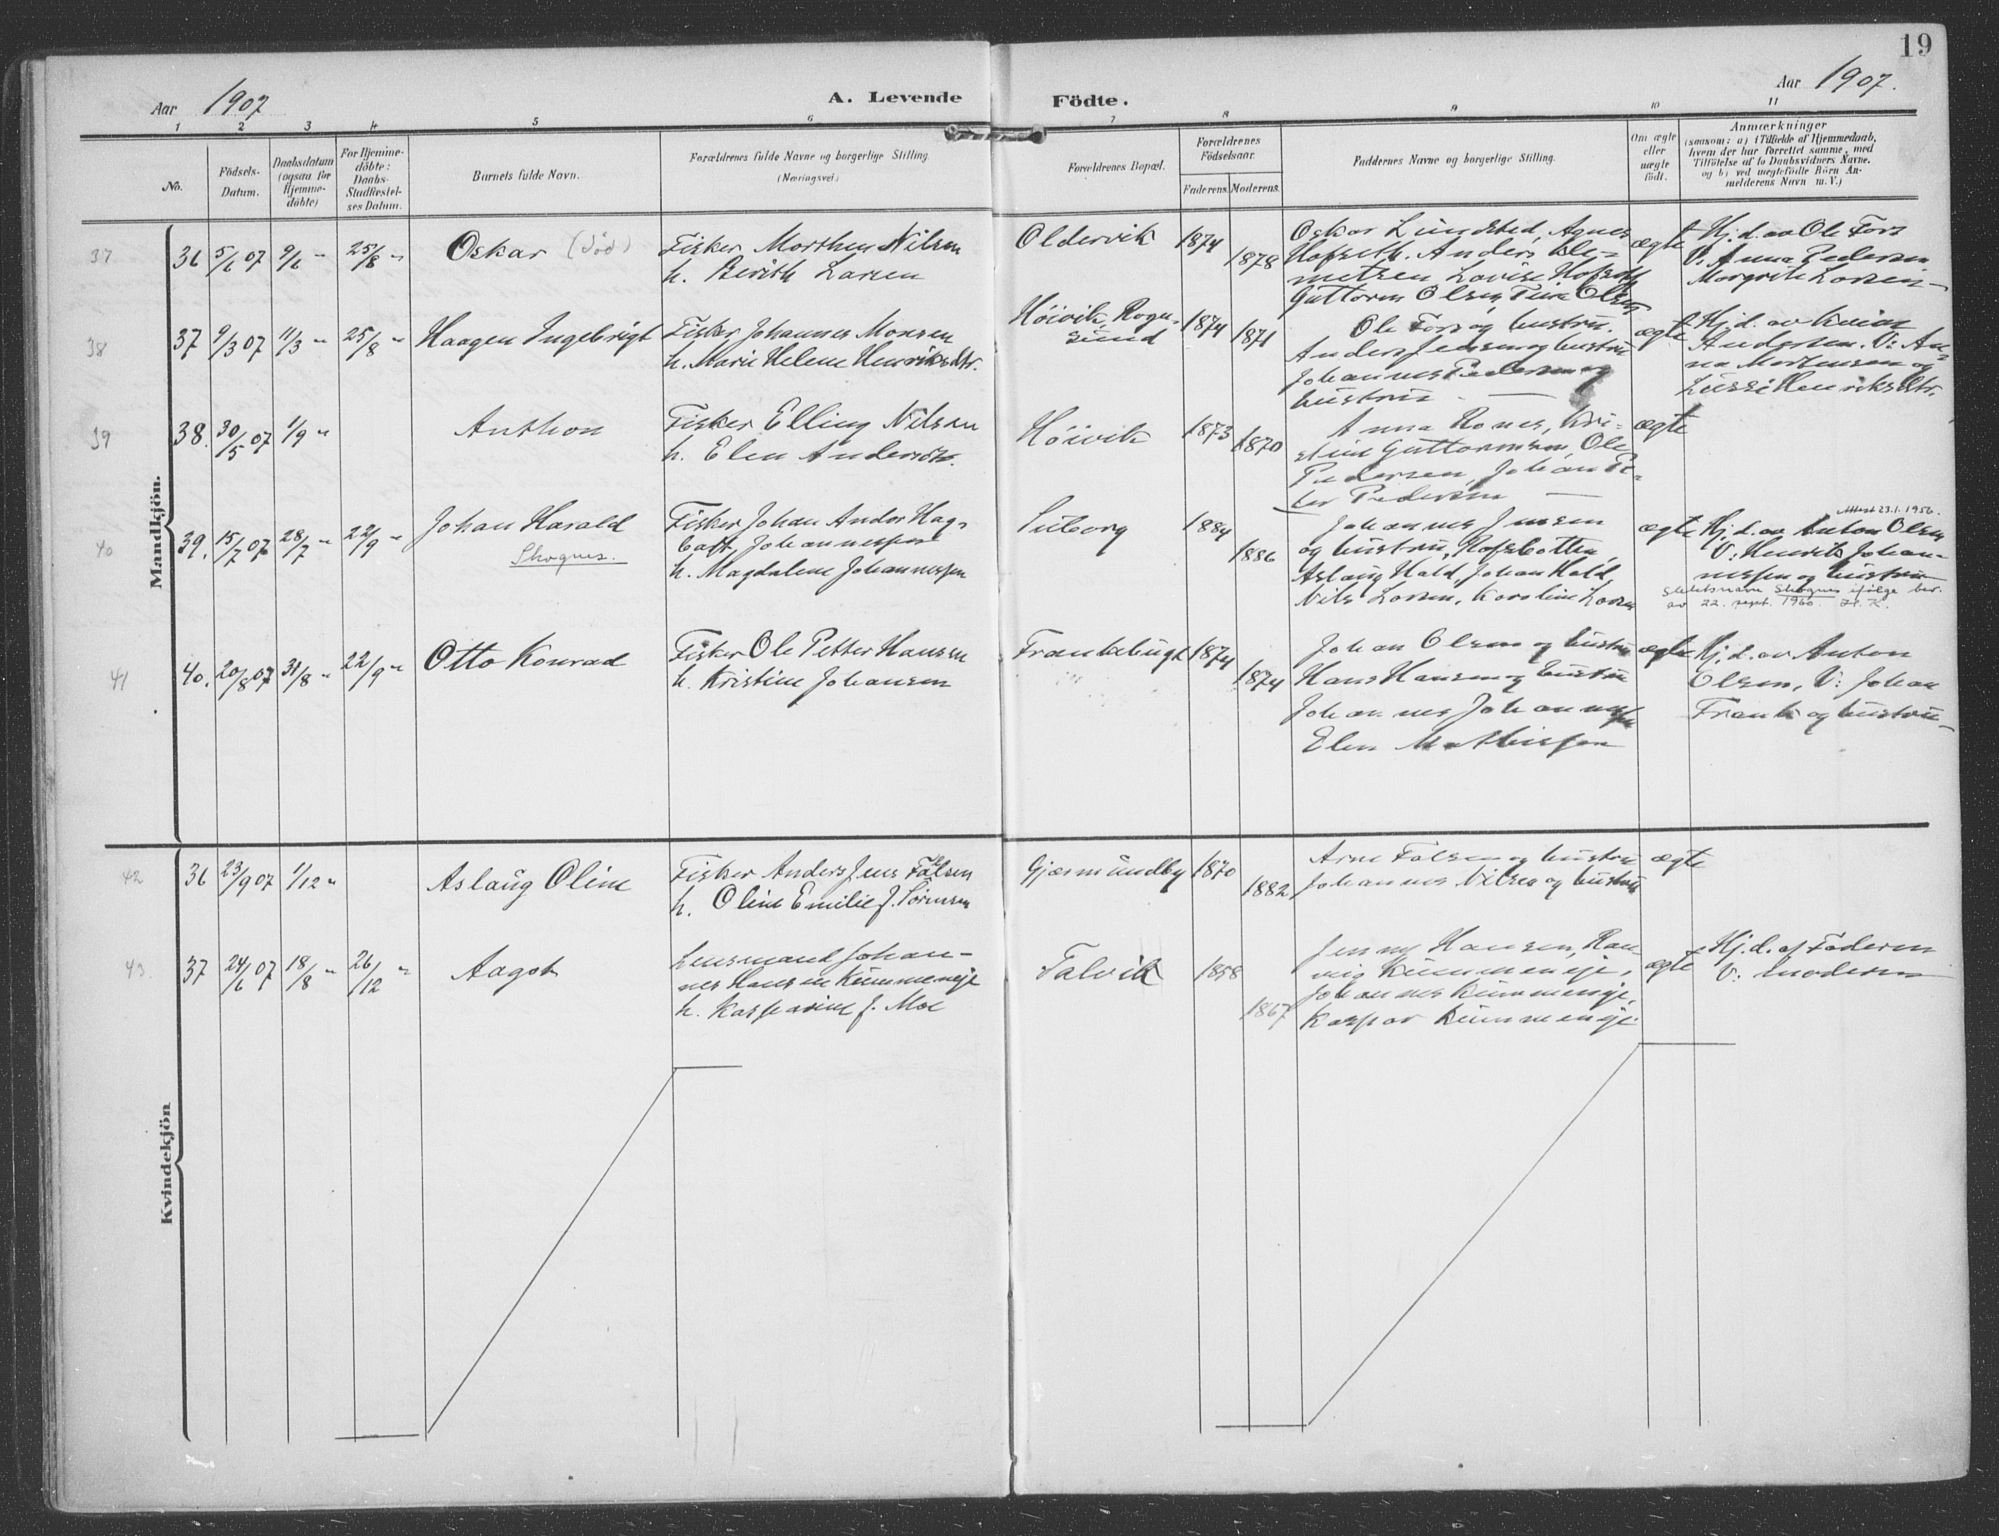 19
Aar 1907
A. Levende
Födte.
Aar 1907.
1 2 3 4 5 6 7 8 9 10 11
No.
Födsels-
Datum.
Daabsdatum
(ogsaa for
Hjemme-
döbte)
For Hjemme-
döbte:
Daabs-
Stadfæstel-
ses Datum.
Barnets fulde Navn.
Forældrenes fulde Navne og borgerlige Stilling
(Næringsvei.)
Forældrenes Bopæl.
Forældrenes
Födselsaar.
Faderens. Moderens.
Faddernes Navne og borgerlige Stilling.
Om ægte
eller
uægte
födt.
Anmærkninger
(saasom: a) i Tilfælde af Hjemmedaab,
hvem der har forrettet samme, med
Tilföielse af to Daabsvidners Navne.
og b) ved uægtefödte Börn An-
melderens Navn m. V.)
Mandkjön.
37
36 5/6 07 9/6 " 25/8 " Oskar (död)
Fisker Morthen Nilsen
h. Berith Larsen
Oldervik 1874 1878
Oskar Lundsted, Agnes
Hofseth. Anders Kle-
metsen Lovise Hofseth
Guttorm Olsen Tine Olsen
ægte
Hj. d. av Ole Fors
V: Anna Pedersen
Margrete Larsen
38
37 9/3 07 11/3 " 25/8 " Haagen Ingebrigt
Fisker Johannes Monsen
h. Marie Helene Henriksdtr.
Höivik, Rogn-
sund
1874 1871
Ole Fors og hustru.
Anders Jensen og hustru
Johannes Pedersen og
hustru
ægte
Hj. d. av
Andersen. V: An-
na Mortensen og
Lussi Henriksdtr.
39
38. 30/5 07 1/9 " Anthon
Fisker Elling Nilsen
h. Elen Andersdtr.
Höivik 1873 1870
Anna Rones, Kri-
stine Guttormsen, Ole
Pedersen, Johan Pe-
ter Pedersen
ægte
40
39. 15/7 07 28/7 " 22/9 " Johan Harald
Skognes.
Fisker Johan Andor Hag-
baft Johannessen
h. Magdalene Johannessen
1884 1886
Johannes Jensen
og hustru, Rafsbotten
Aslaug Hald, Johan Hald,
Nils Larsen, Karoline Larsen
ægte
Attest 23.1.1956.
Hj. d. av Anton Olsen
V: Henrik Johan-
nessen og hustru
Slektsnavn Skognes ifölge bev.
av 22. sept. 1960. H. K.
41
40. 20/8 07 31/8 " 22/9 " Otto Konrad
Fisker Ole Petter Hansen
h. Kristine Johansen
Frankbugt 1874 1874
Johan Olsen og hustru
Hans Hansen og hustru
Johannes Johannessen
Elen Mathissen
ægte
Hj. d. av Anton
Olsen, V: Johan
Frank og hustru
Kvindekjön
42
36 23/9 07 1/12 " Aslaug Oline
Fisker Anders Jens Falsen
h. Oline Emilie f. Sörensen
Gjærmundby 1870 1882
Arne Falsen og hustru
Johannes Nilsen og hustru
ægte
43.
37 24/6 07 18/8 " 26/12 " Aagot
Lensmand Johan-
nes Hansen Kummeneje
h. Kasparine f. Moe
Talvik 1858 1867
Jenny Hansen, Ran-
veig Kummeneje,
Johannes Kummeneje,
Kaspar Kummeneje
ægte
Hj. d. af Faderen
V: moderen